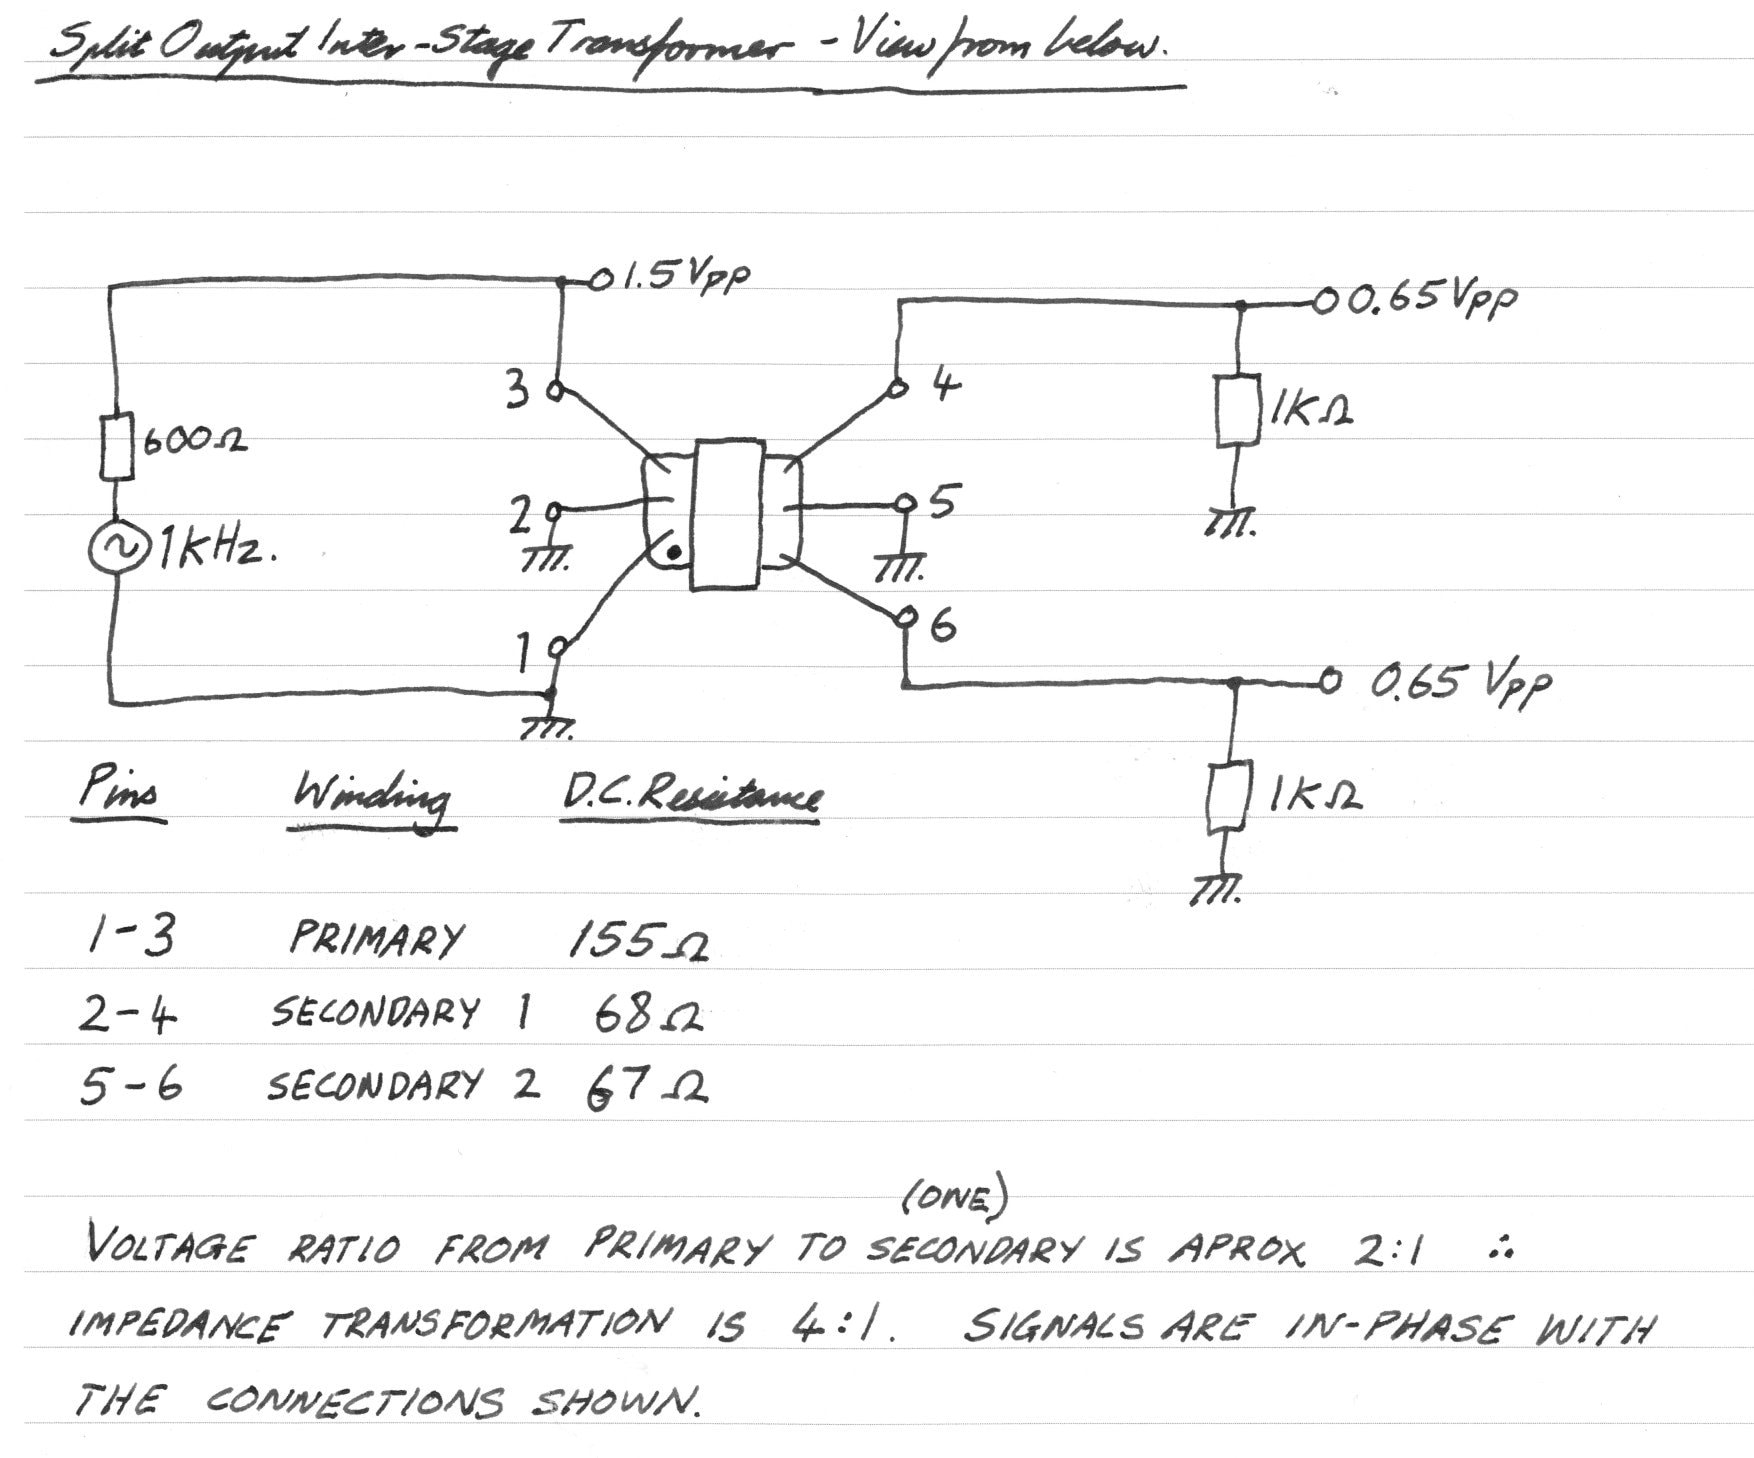 Split Output Inter-Stage Transformer - View from below.
1.5 Vpp
0.65 Vpp
3
4
1KΩ
600Ω
2
5
1KHz.
1
6
0.65 Vpp
1KΩ
Pins Winding D.C. Resistance
1-3 PRIMARY 155Ω
2-4 SECONDARY 1 68Ω
5-6 SECONDARY 2 67Ω
(ONE)
VOLTAGE RATIO FROM PRIMARY TO SECONDARY IS APROX 2:1 ∴
IMPEDANCE TRANSFORMATION IS 4:1. SIGNALS ARE IN-PHASE WITH
THE CONNECTIONS SHOWN.